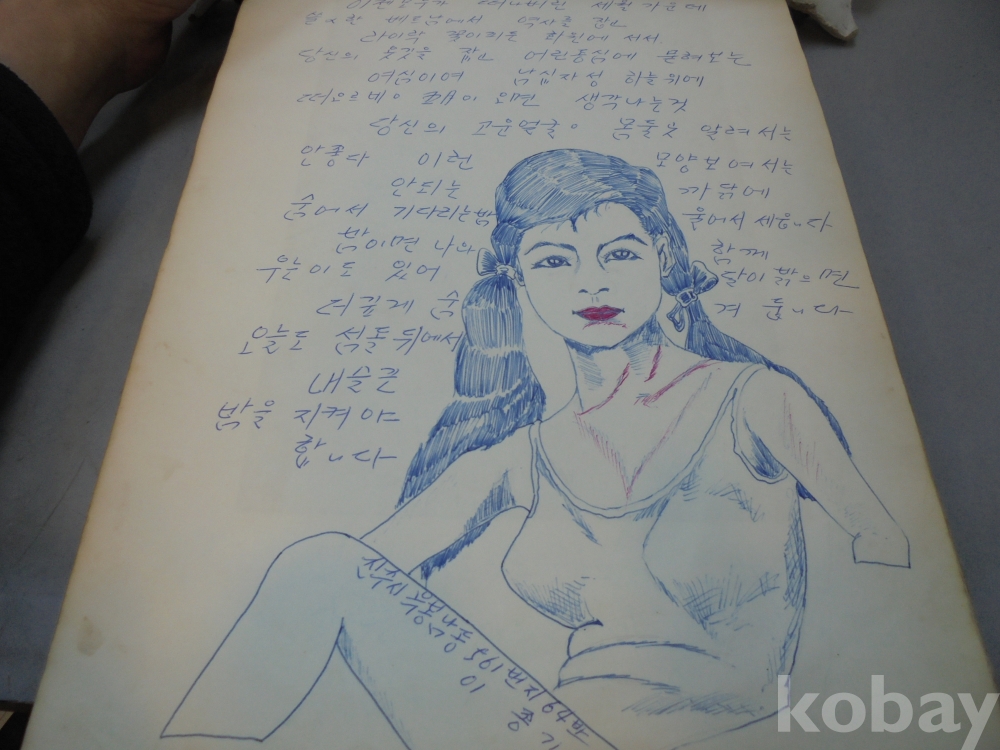 떠나버린 세월 가운데
역사를 안고
라이락 꽃이피는 화원에 서서
당신의 어린동심에 물려보는
여심이여 남십자성 하늘위에
오면 생각나는것
당신의 고운얼굴 알려서는
안좋다 이런 모양보여서는
안되는 까닭에
숨어서 기다리는밤 울어서 세웁니다
밤이면 나와 함께
우는이도 있어 달이 밝으면
더깊게 숨겨 둡니다
오늘도 섬돌뒤에서
내슬픈
밤을 지켜야
합니다
진주시 561번지
이종기
kobay